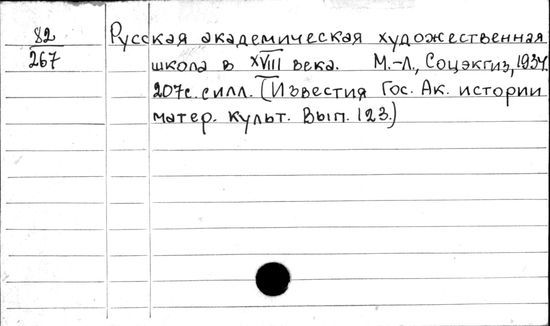 82
267
Русская академическая художественная
школа в XVIII века. М.-Л., Соцэкгиз, 1934
207с. силл. (Известия Гос. Ак. истории
матер. культ. Вып. 123.)